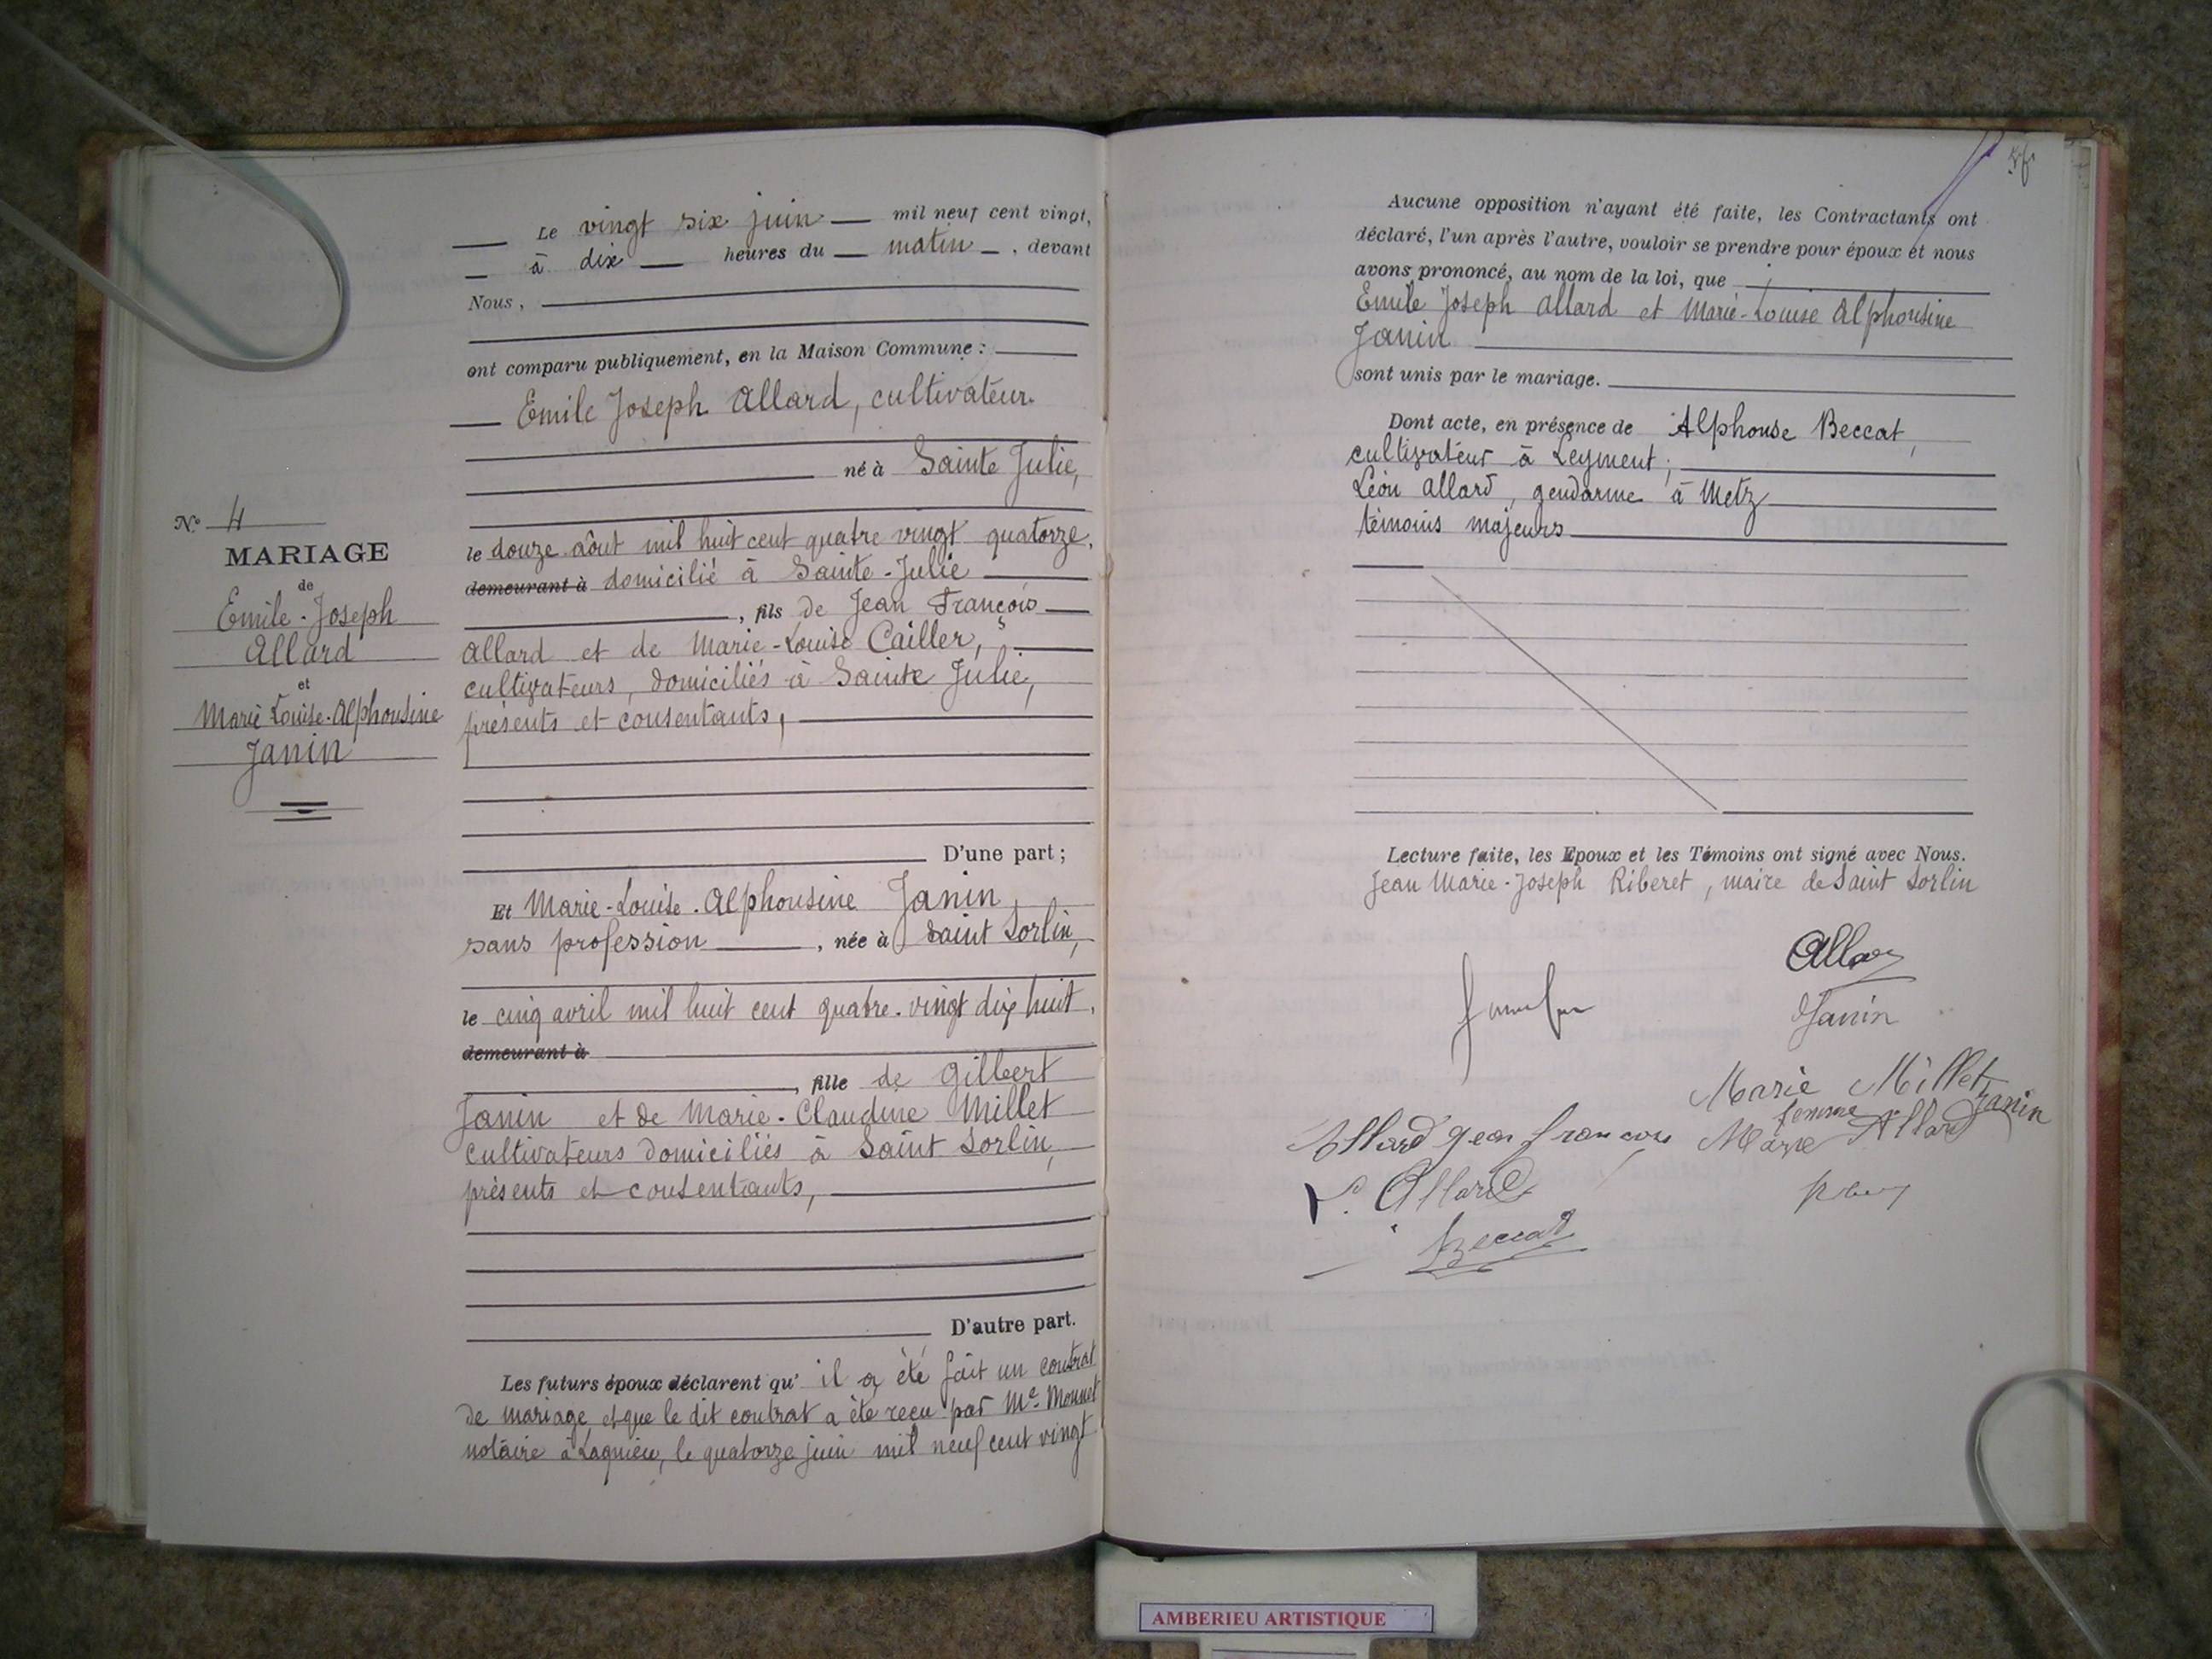 Le vingt six juin mil neuf cent vingt,
à dix heures du matin, devant
Nous,
ont comparu publiquement, en la Maison Commune :
Emile Joseph Allard, cultivateur
né à Sainte Julie,
le douze août mil huit cent quatre vingt quatorze,
demeurant à domicilié à Sainte-Julie
, fils de Jean François
Allard et de Marie-Louise Cailler,
cultivateurs, domiciliés à Sainte Julie,
présents et consentants,
D'une part ;
Et Marie-Louise-Alphonsine Janin,
sans profession, née à Saint Sorlin,
le cinq avril mil huit cent quatre-vingt dix huit,
demeurant à
, fille de Gilbert
Janin et de Marie-Claudine Millet
cultivateurs domiciliés à Saint Sorlin,
présents et consentants,
D'autre part.
Les futurs époux déclarent qu'il a été fait un contrat
de mariage et que le dit contrat a été reçu par Me Monnet
notaire à Lagnieu, le quatorze juin mil neuf cent vingt
No 4
MARIAGE
de
Emile-Joseph
Allard
et
Marie Louise-Alphonsine
Janin
Aucune opposition n'ayant été faite, les Contractants ont
déclaré, l'un après l'autre, vouloir se prendre pour époux et nous
avons prononcé, au nom de la loi, que
Emile Joseph Allard et Marie-Louise Alphonsine
Janin
sont unis par le mariage.
Dont acte, en présence de Alphonse Beccat,
cultivateur à Leyment ;
Léon Allard, gendarme à Metz
témoins majeurs
Lecture faite, les Epoux et les Témoins ont signé avec Nous.
Jean Marie-Joseph Riberet, maire de Saint Sorlin
Janin
Marie Millet
femme Janin
Allard Jean francois Marie Allard
L. Allard
Beccat
AMBERIEU ARTISTIQUE